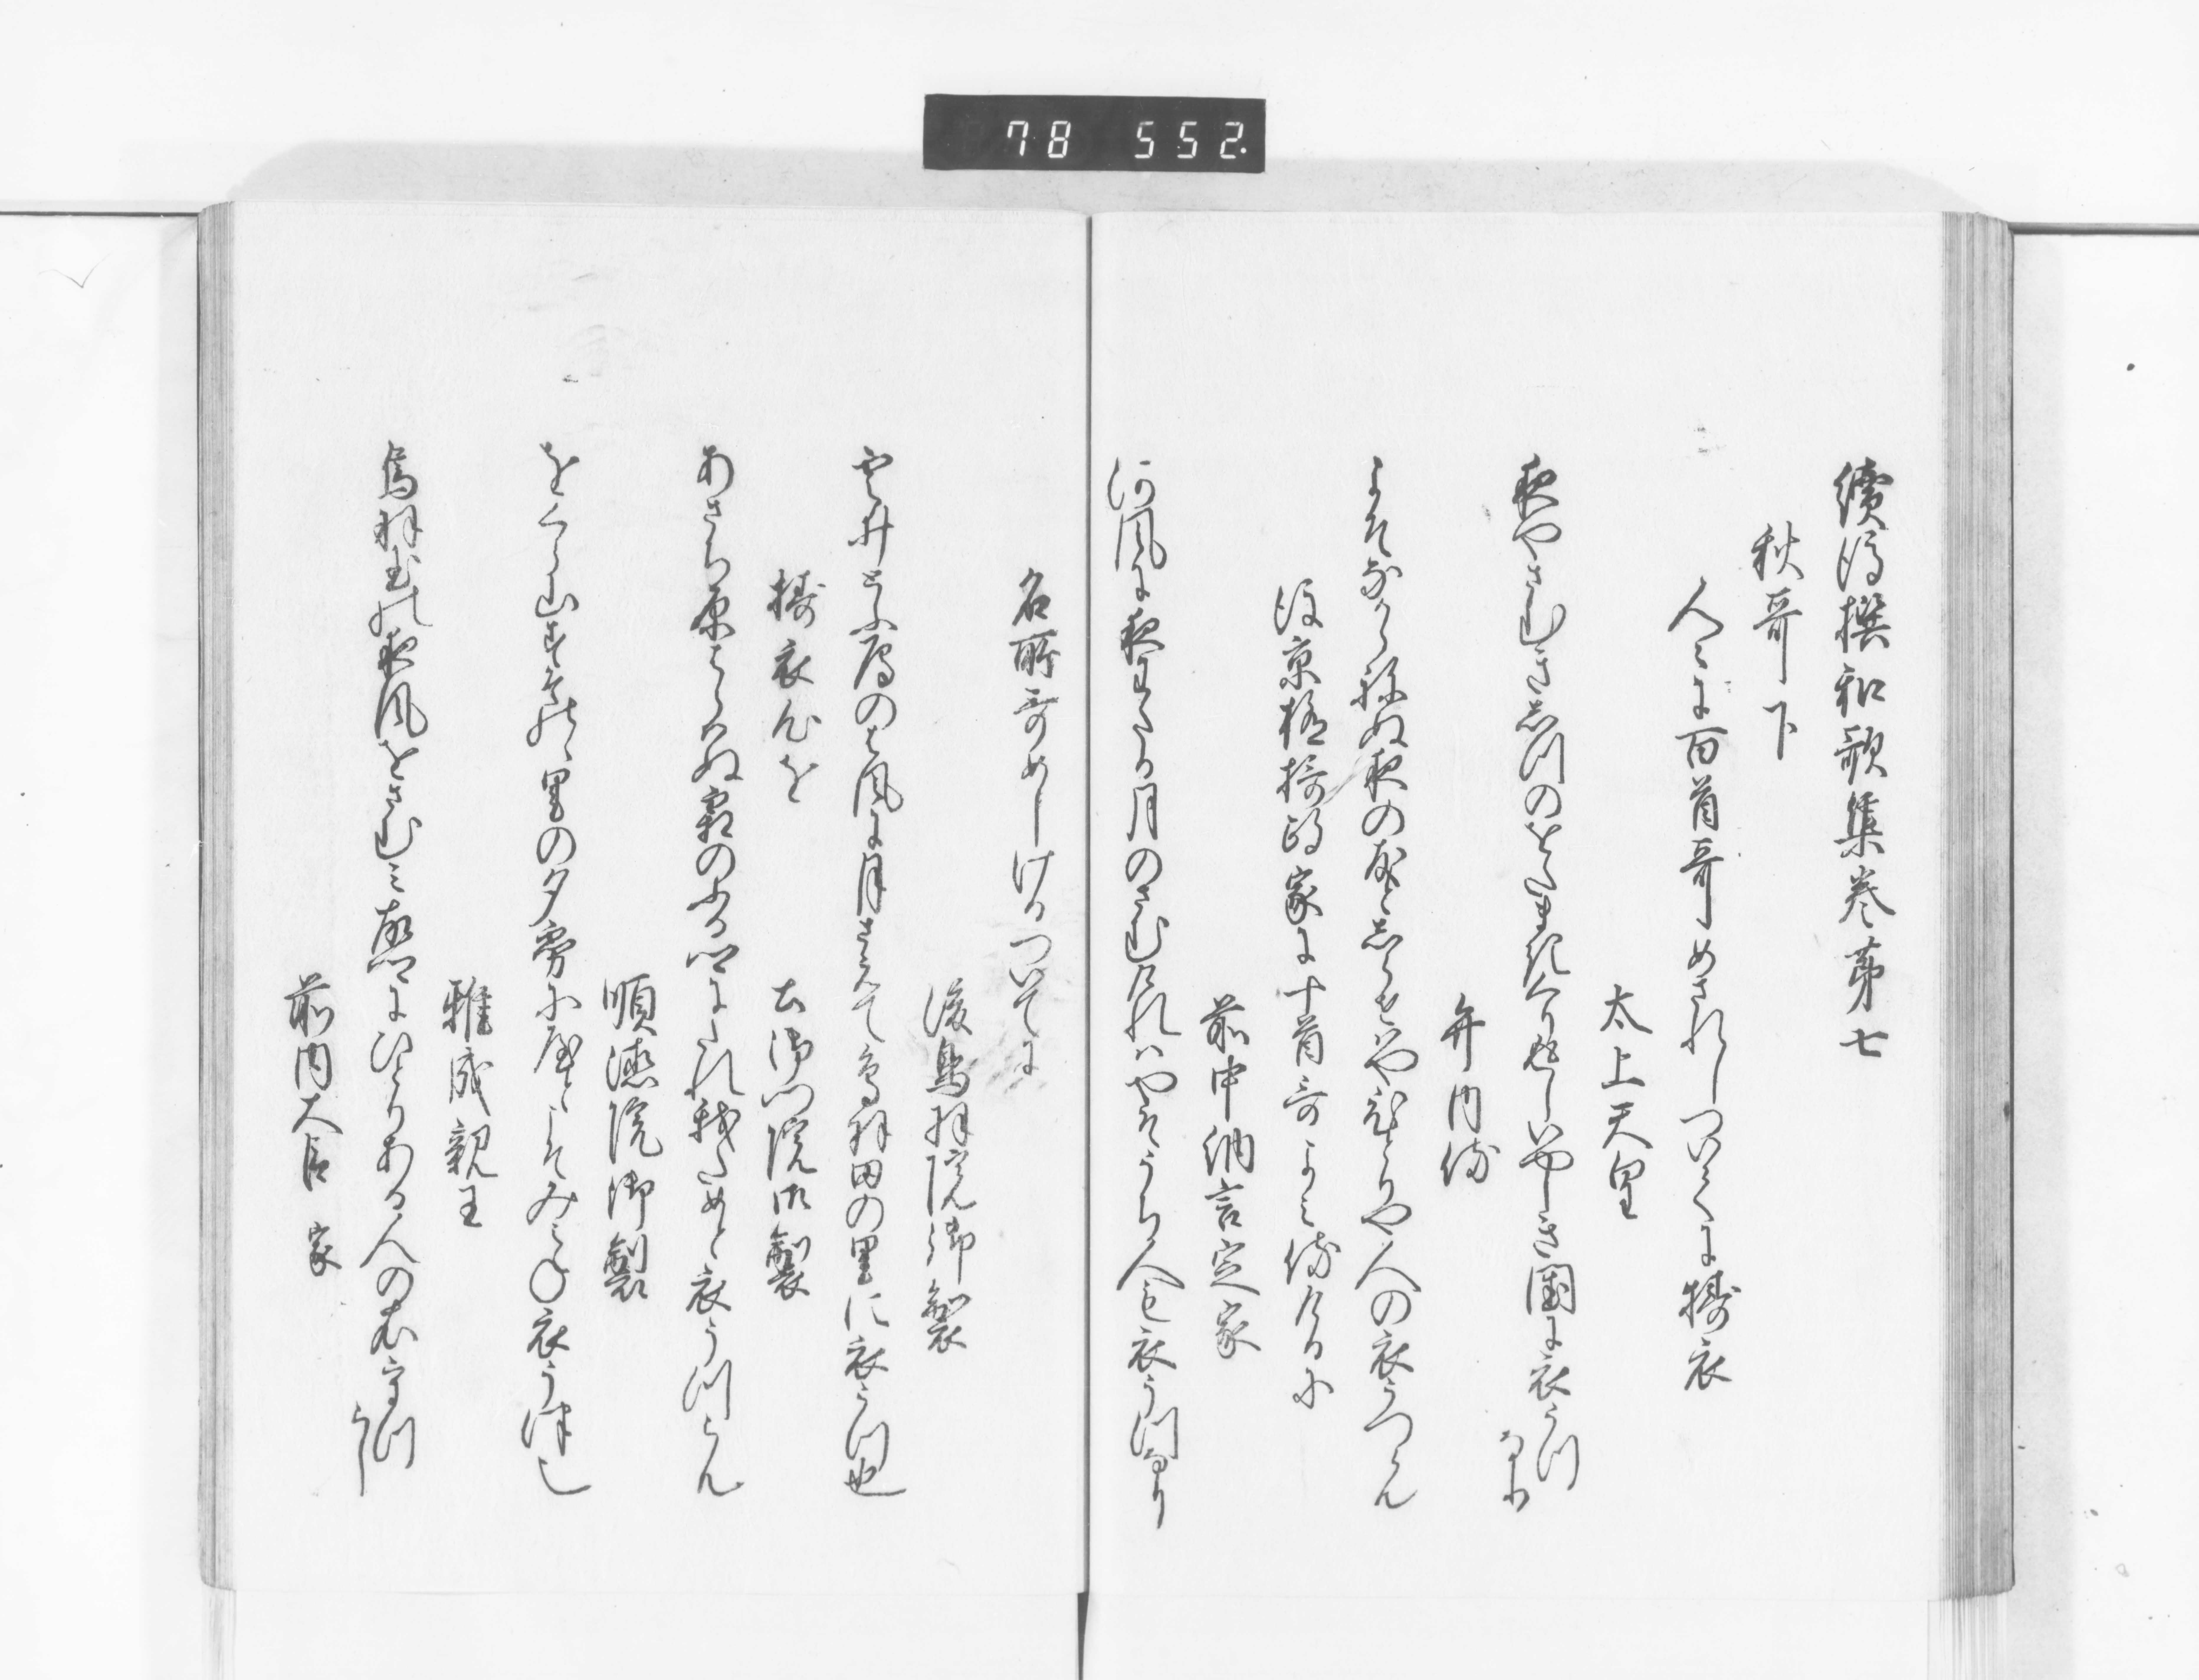 78 552.
續後撰和歌集巻第七
秋哥下
人々に百首哥めされしついてに擣衣
太上天皇
夜やさむきしつのをたまきくり返しいやしき閨に衣うつ
なり
弁内侍
よそなからねぬ夜の友としらせはやひとりや人の衣うつらん
後京極摂政家に十首哥よみ侍けるに
前中納言定家
河風に夜わたる月のさむけれはやそうち人も衣うつなり
名所哥めしけるついてに
後鳥羽院御製
雲井とふ鴈のは風に月さえて鳥羽田の里に衣うつ也
擣衣心を
土御門院御製
あさち原はらはぬ霜のふる里にたれ我ためと衣うつらん
順徳院御製
をくら山すその里の夕霧に宿こそみえね衣うつ
雅成親王
烏羽玉の夜風をさむみ里にひとりある人の衣うつ
らし
前内大臣 家